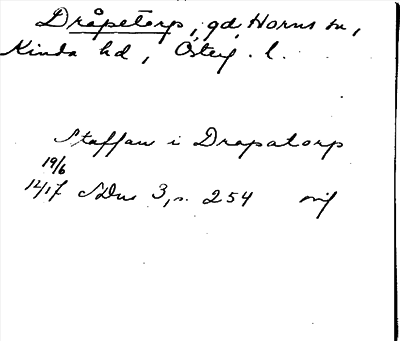 Dråpetorp, gd, Horns sn,
Kinda hd, Österg. l.
Staffan i Drapatorp
19/6
1417 SDns 3, s. 254 orig